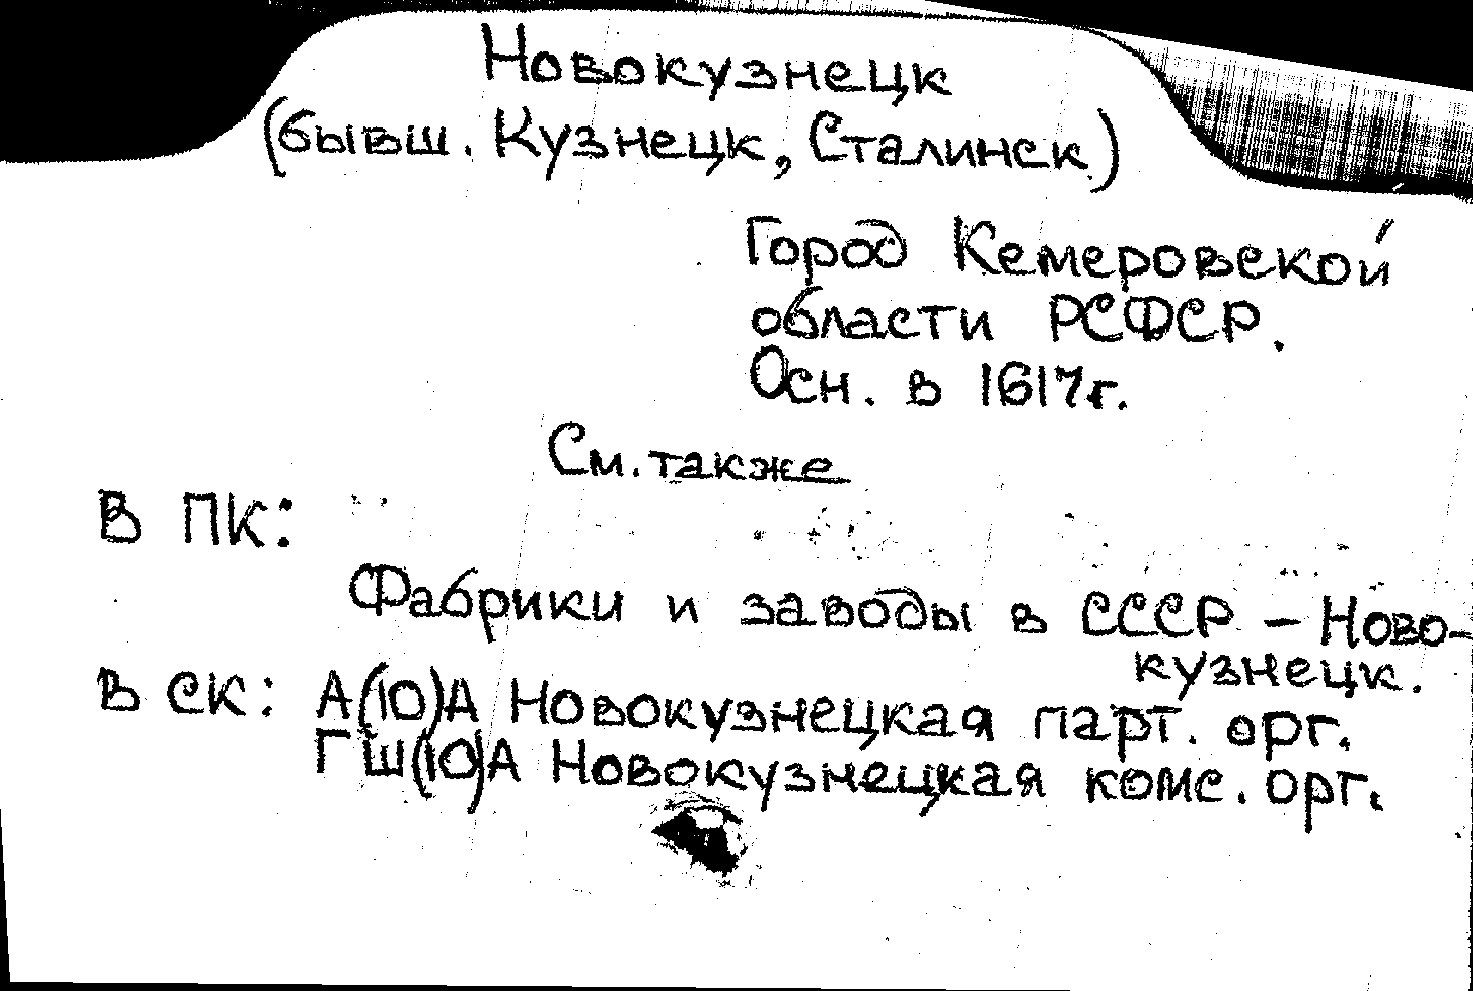 Новокузнецк
(бывш. Кузнецк, Сталинск)
Город Кемеровской
области РСФСР.
Осн. в 1617г.
См. также
В ПК:
Фабрики и заводы в СССР – Ново-
кузнецк.
В СК: А(10)А Новокузнецкая парт. орг.
ГШ(10)А Новокузнецкая комс. орг.